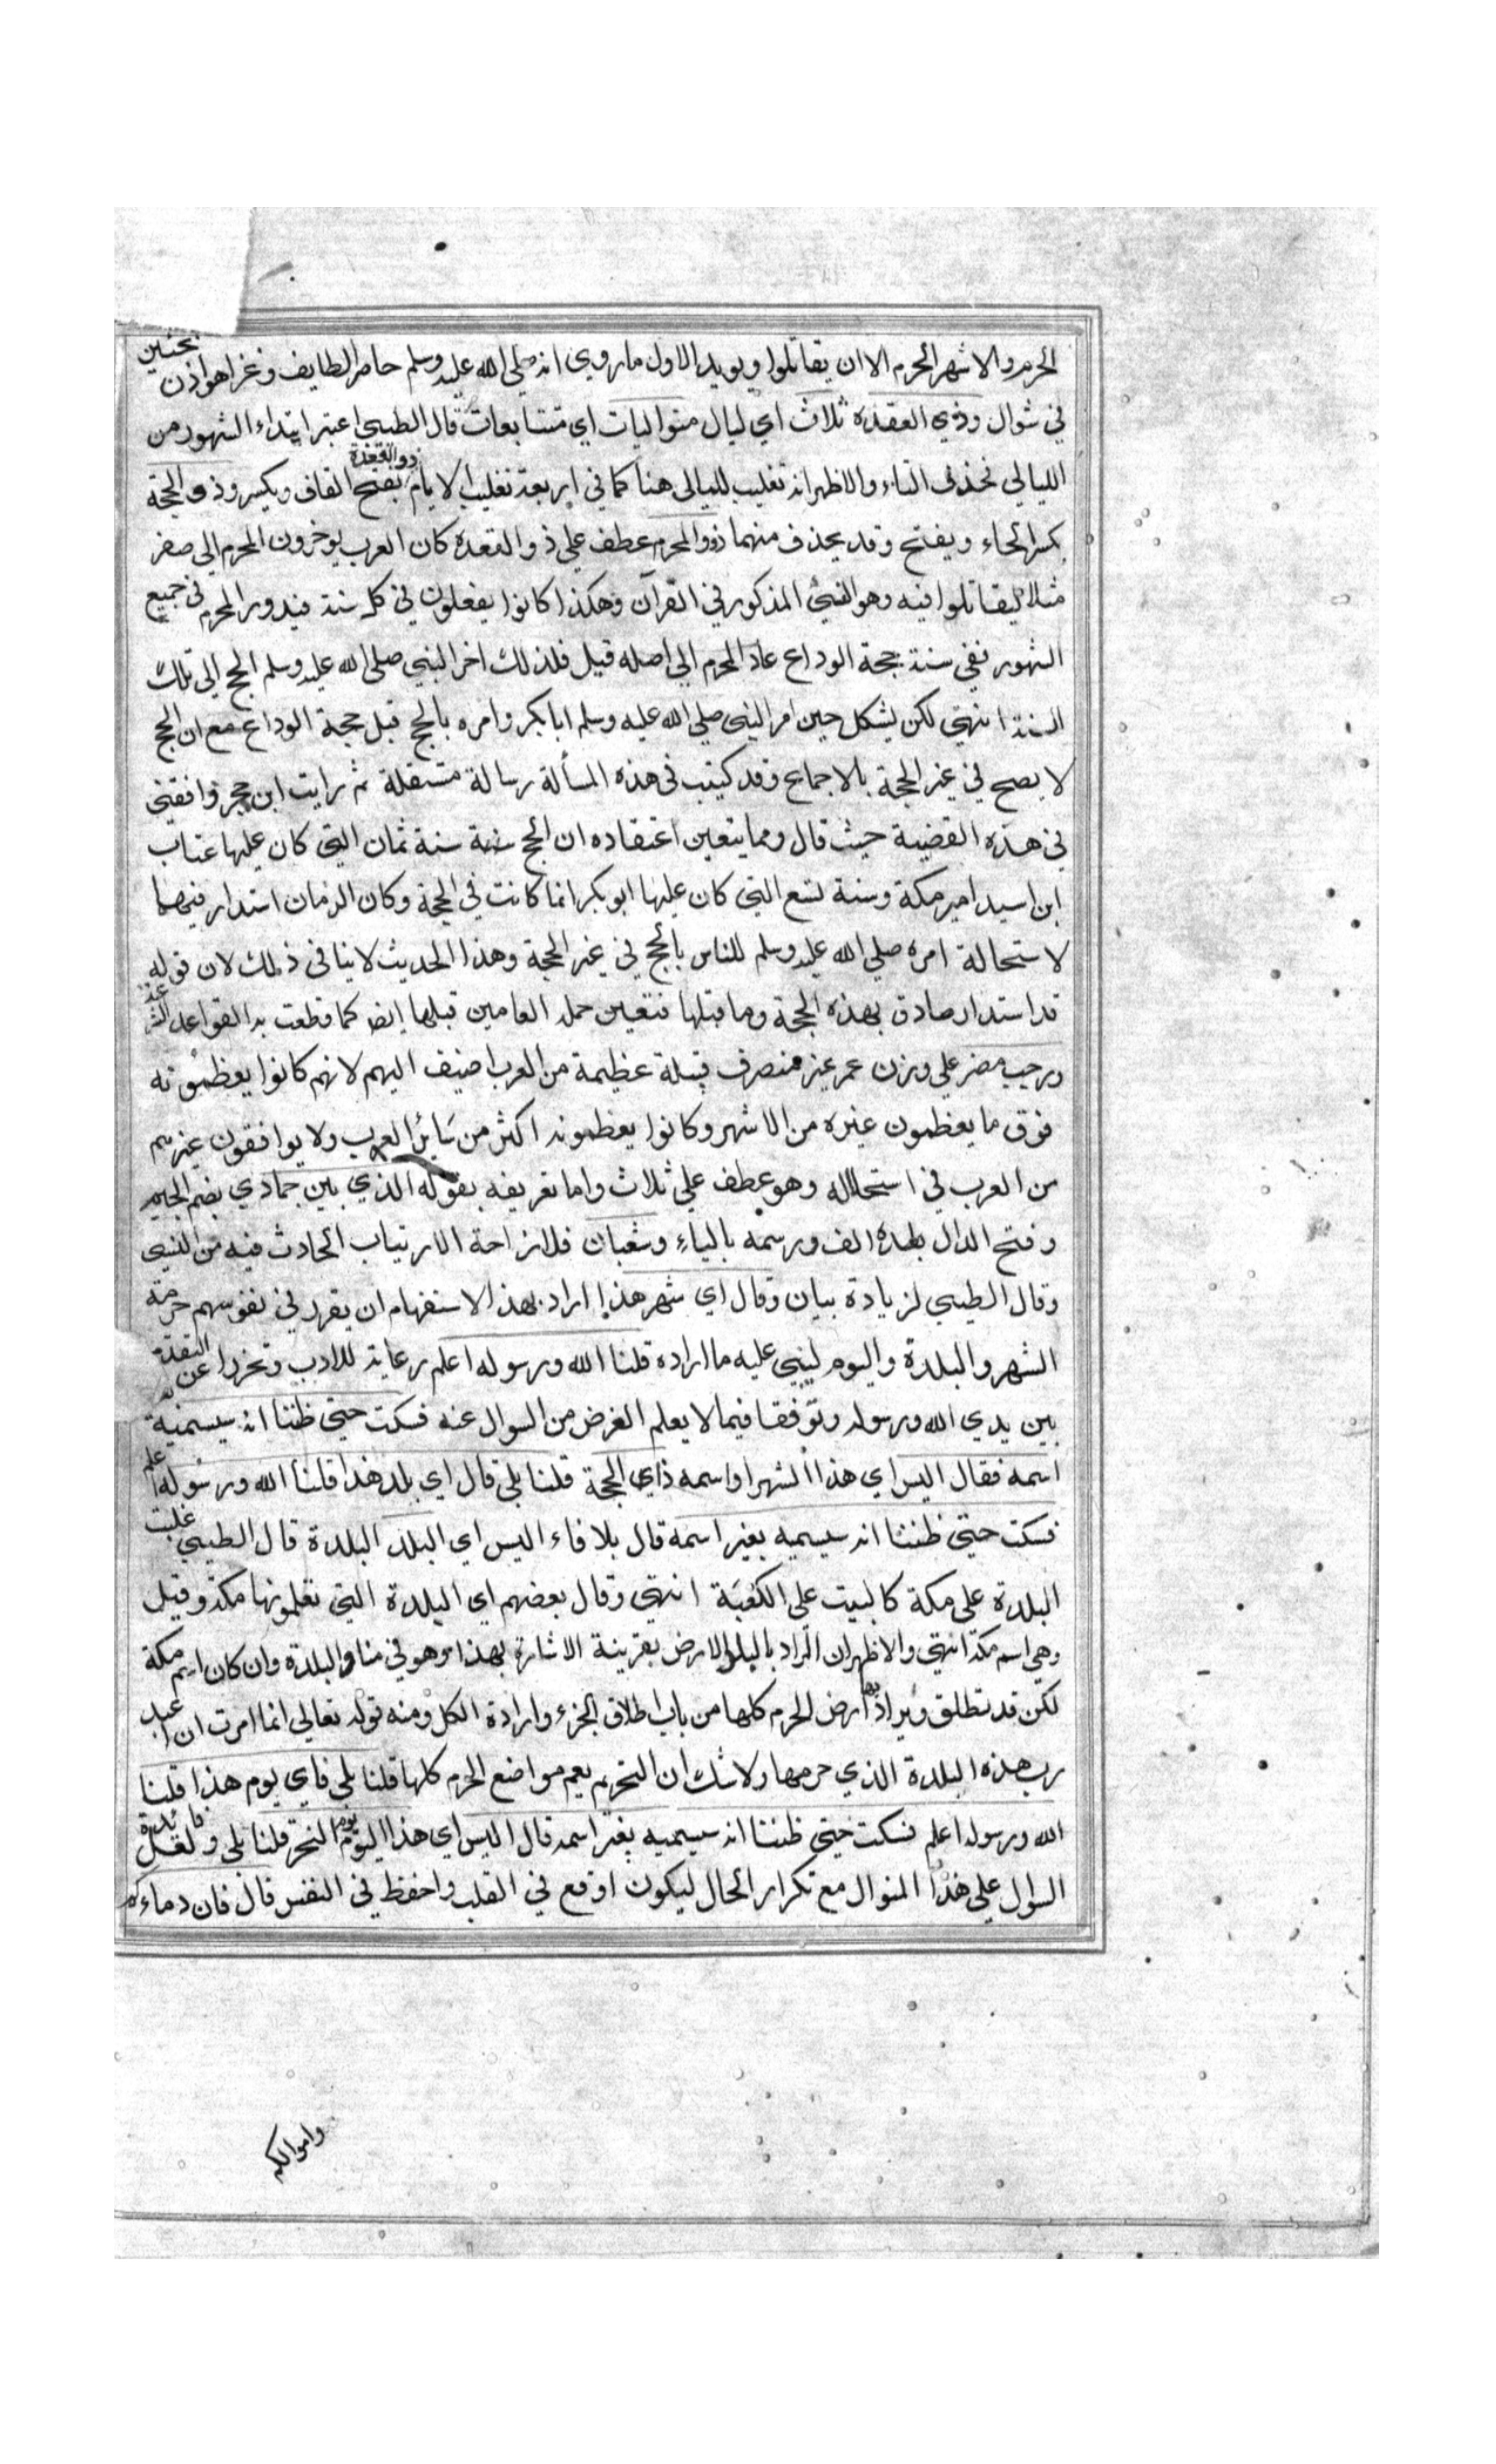 الحرم والاشهر الحرم الا ان يقاتلوا ويويد الاول ما روي انه صلي الله عليه وسلم حاصر الطايف وغزا هوازن بحنين
في شوال وذي القعدة ثلاث اي ليال متواليات اي متتابعات قال الطيبي اعتبر ابتداء الشهور من
الليالي فحذف التاء والاظهر انه تغليب لليالي هنا كما في اربعة تغليب الايام ذو القعدة بفتح القاف ويكسر وذو الحجة
بكسر الحاء ويفتح وقد يحذف منهما ذو والمحرم عطف علي ذو القعدة كان العرب يوخرون المحرم الي صفر
مثلا ليقاتلوا فيه وهو النسئ المذكور في القرآن وهكذا كانوا يفعلون في كل سنة فيدور المحرم في جميع
الشهور ففي سنة حجة الوداع عاد المحرم الي اصله قيل فلذلك اخر النبي صلي الله عليه وسلم الحج الي تلك
السنة انتهي لكن يشكل حين امر النبي صلي الله عليه وسلم ابا بكر وامره بالحج قبل حجة الوداع مع ان الحج
لا يصح في غير الحجة بالاجماع وقد كتبت في هذه المسألة رسالة مستقلة ثم رايت ابن حجر وافقني
في هذه القضية حيث قال ومما يتعين اعتقاده ان الحج سنة سنة ثمان التي كان عليها عتاب
ابن اسيد امير مكة وسنة تسع التي كان عليها ابو بكر انما كانت في الحجة وكان الزمان استدار فيهما
لاستحالة امره صلي الله عليه وسلم للناس بالحج في غير الحجة وهذا الحديث لا ينافي ذلك لان قوله
قد استدار صادق بهذه الحجة وما قبلها فتعين حمله العامين قبلها ايض كما قطعت به القواعد الشرعية
ورجب مضر علي وزن عمر غير منصرف قبيلة عظيمة من العرب اضيف اليهم لانهم كانوا يعظمونه
فوق ما يعظمون غيره من الاشهر وكانوا يعظمونه اكثر من سَائر العرب ولا يوافقون غيرهم
من العرب في استحلاله وهو عطف علي ثلاث واما تعريفه بقوله الذي بين جمادي بضم الجيم
وفتح الدال بعده الف ورسمه بالياءِ وشعبان فلازاحة الارتياب الحادث فيه من النسئ
وقال الطيبي لزيادة بيان وقال اي شهر هذا اراد بهذا الاستفهام ان يقرر في نفوسهم حرمة
الشهر والبلدة واليوم ليبني عليه ما اراده قلنا الله ورسوله اعلم رعاية للادب وتحرزا عن التقدم
بين يدي الله ورسوله وتوقفا فيما لا يعلم الغرض من السوال عنه فسكت حتي ظننا انه سيسميه بغير
اسمه فقال اليس اي هذا الشهر او اسمه ذاي الحجة قلنا بلي قال اي بلد هذا قلنا الله ورسوله اعلم
فسكت حتي ظننا انه سيسميه بغير اسمه قال بلا فاء اليس اي البلد البلدة قال الطيبي غلبت
البلدة علي مكة كالبيت علي الكعبَة انتهي وقال بعضهم اي البلدة التي تعلمونها مكة وقيل
وهي اسم مكة انتهي والاظهر ان المراد بالبلد الارض بقرينة الاشارة بهذا وهو في منا والبلدة وان كان اسم مكة
لكن قد تطلق ويراد بها ارض الحرم كلها من باب اطلاق الجزء وارادة الكل ومنه قوله تعالي انما امرت ان اعبد
رب هذه البلدة الذي حرمها ولا شك ان التحريم يعم مواضع الحرم كلها قلنا بلي فاي يوم هذا قلنا
الله ورسوله اعلم فسكت حتي ظننا انه سيسميه بغير اسمه قال اليس اي هذا اليوم يوم النحر قلنا بلي ولعل فائدة
السوال علي هذا المنوال مع تكرار الحال ليكون اوقع في القلب واحفظ في النفس قال فان دماءكم
واموالكم